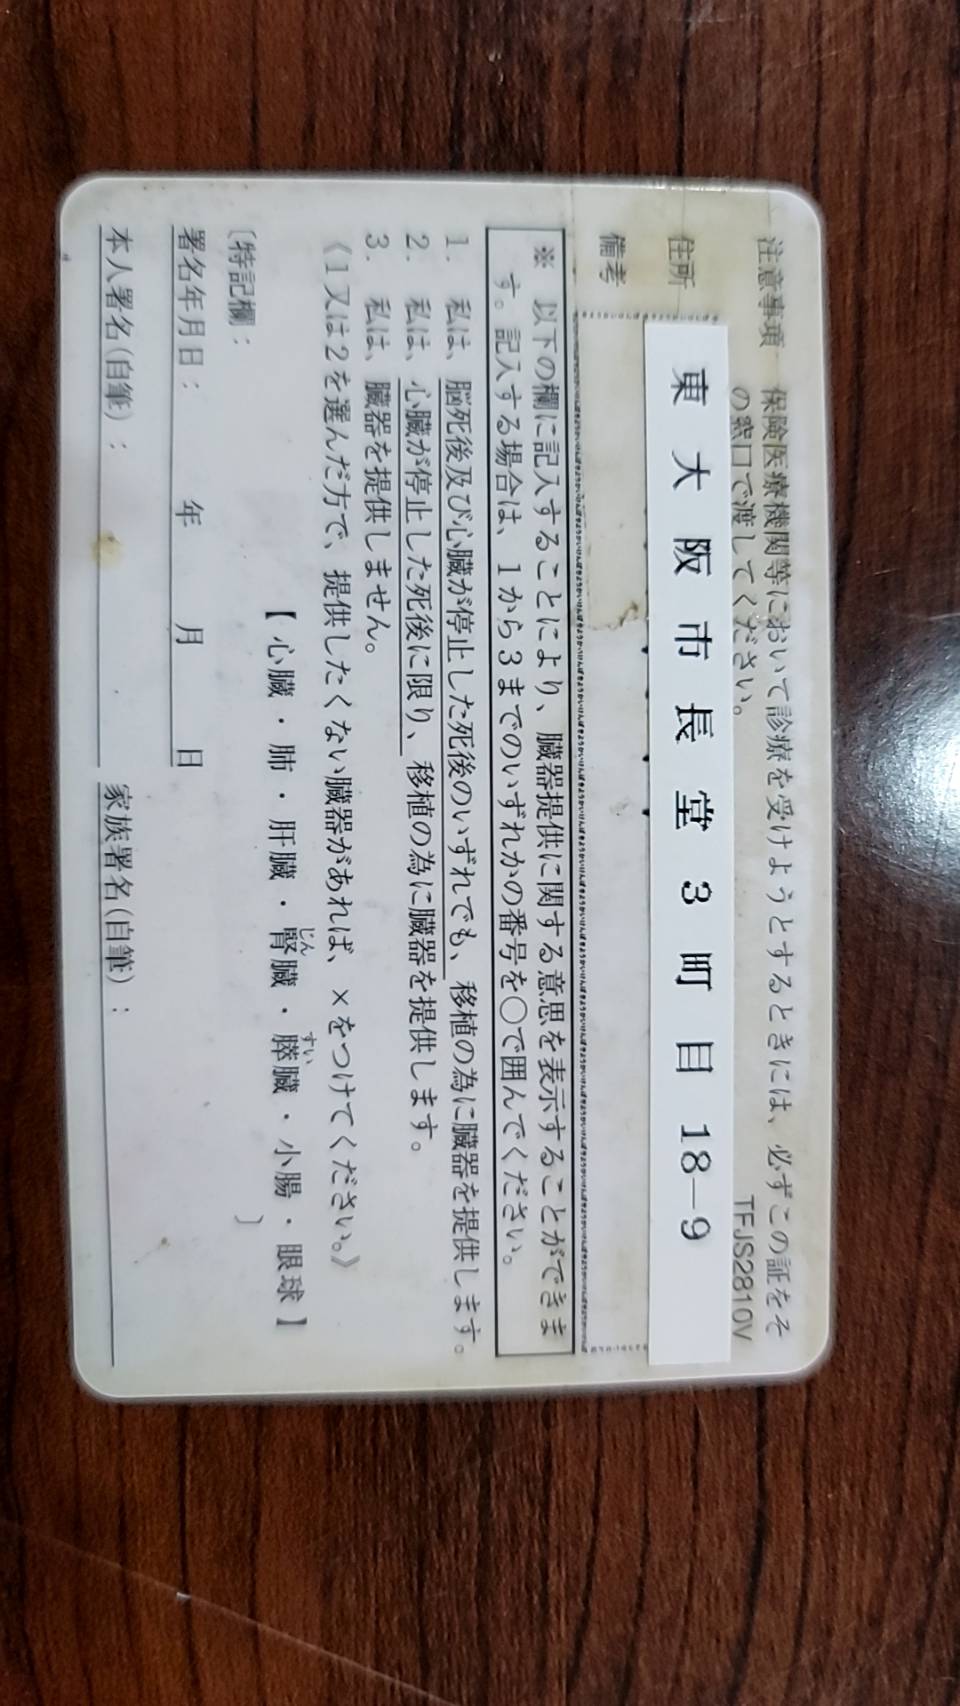 注意事項　保険医療機関等において診療を受けようとするときには、必ずこの証をそ
の窓口で渡してください。
TFJS2810V
住所　東大阪市長堂3町目18-9
備考
※　以下の欄に記入することにより、臓器提供に関する意思を表示することができま
す。記入する場合は、1から3までのいずれかの番号を○で囲んでください。
1.　私は、脳死後及び心臓が停止した死後のいずれでも、移植の為に臓器を提供します。
2.　私は、心臓が停止した死後に限り、移植の為に臓器を提供します。
3.　私は、臓器を提供しません。
《1又は2を選んだ方で、提供したくない臓器があれば、×をつけてください。》
【 心臓・肺・肝臓・腎臓・膵臓・小腸・眼球 】
じん　すい
〔特記欄：　〕
署名年月日：　年　月　日
本人署名(自筆)：　家族署名(自筆)：